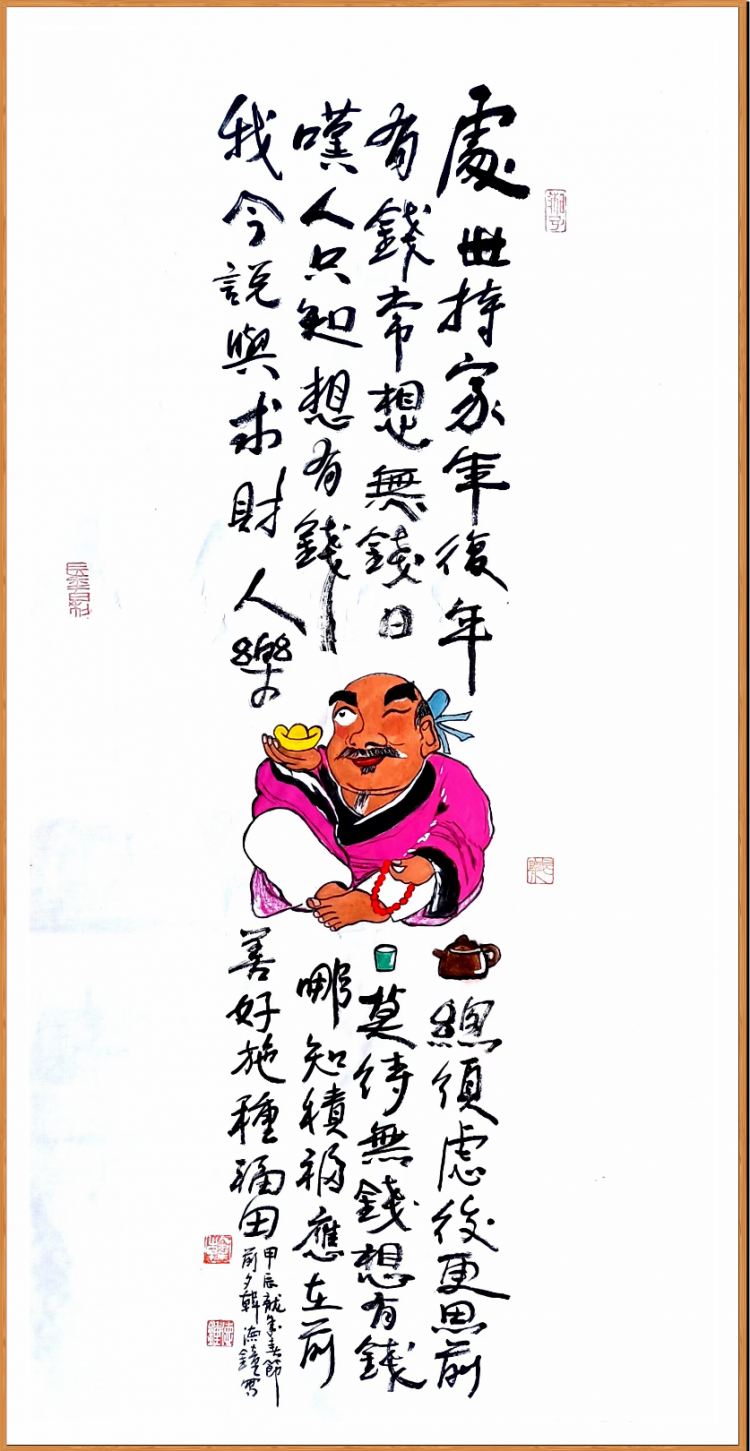 處世持家年復年
總須慮後更思前
有錢常想無錢日
莫待無錢想有錢
嘆人只知想有錢
哪知積福應在前
我今說與求財人
樂善好施種福田
甲辰龍年春節
前夕韓德寫